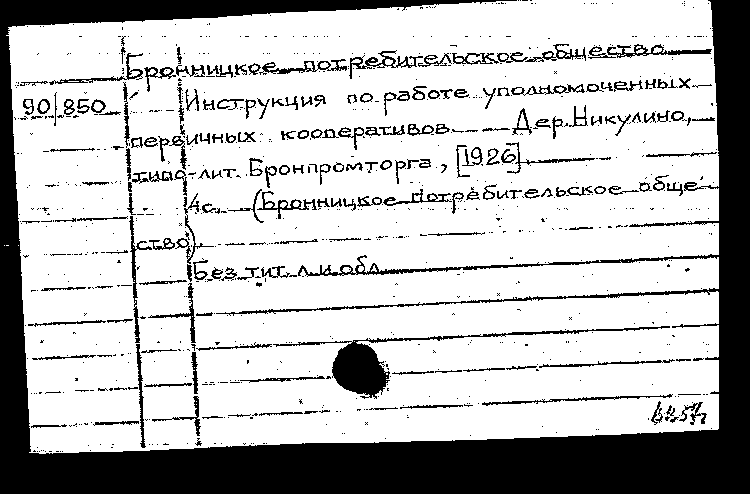 Бронницкое потребительское общество
90/850 Инструкция по работе уполномоченных
первичных кооперативов. — Дер. Никулино,
типо-лит. Бронпромторга, [1926].
4с. (Бронницкое потребительское обще-
ство).
Без тит. л. и обл.